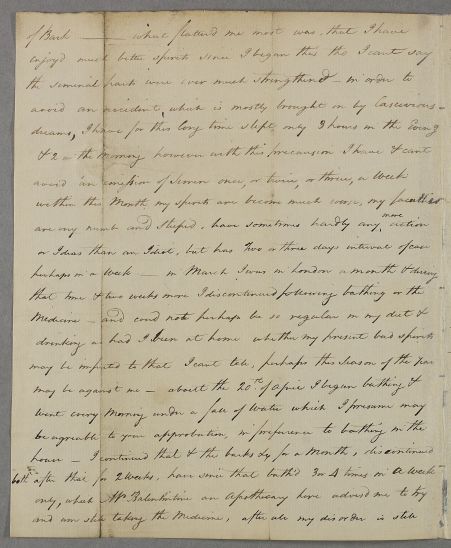 of Bark ——— what flatterd me most was, that I have
enjoyd much better spirits since I began this tho I cant say
the seminial parts were ever much strengthend — in order to
avoid an accident, which is mostly brought on by Lascivious
dreams, I have for this long time slept only 3 hours in the Eveng
& 2 in the Morning however with this precaution I have & cant
avoid an emission of Semen once, or twice, or thrice, a Week
within this Month my spirits are become much worse, my faculties
are very numb and stupid, have sometimes hardly any more action
or Ideas than an Idiot, but has Two or three days interval of ease
perhaps in a Week — in March I was in London a month & during
that time & two weeks more I discontinued following bathing or the
Medicine — and coud not perhaps be so regular in my diet &
drinking as had I been at home whether my present bad spirits
may be imputed to that I cant tell, perhaps this Season of the Year
may be against me — about the 20th of April I began bathing &
went every Morning under a fall of Water which I presume may
be agreable to your approbation, in preference to bathing in the
house — I continued that & the barks &c for a Month, discontinued
both after that for 2 weeks, have since that bath'd 3 or 4 times in a Week
only, which Mr Balentine an Apothecary here advised me to try
and am still taking the Medicine, after all my disorder is still